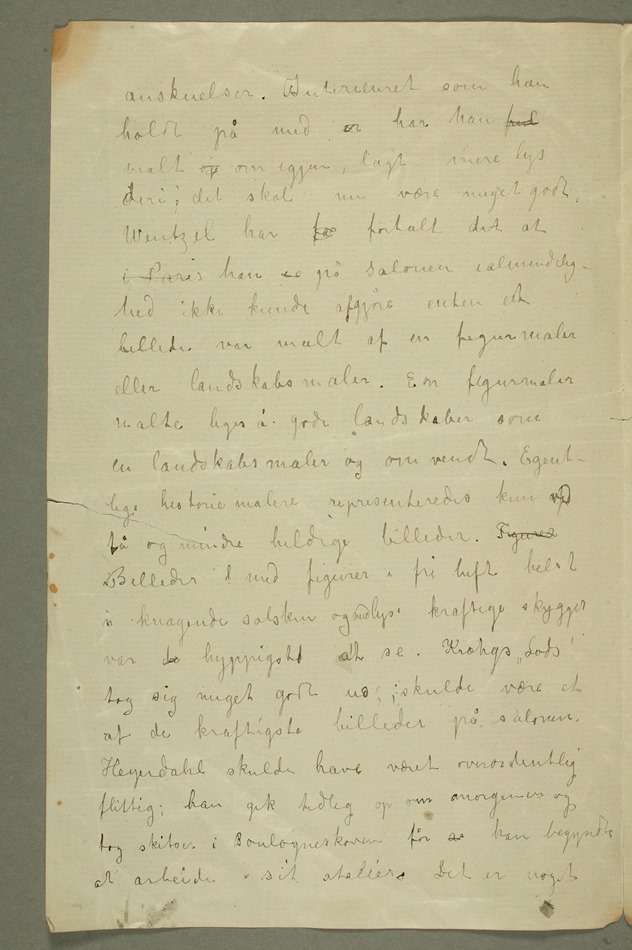 anskuelser. Interieuret som han
holdt på med er har han
malt op om igjen, lagt mere lys
deri; det skal nu være meget godt.
Wentzel har fortalt det at
i Paris han på salonen ialmindelig-
hed ikke kunde afgjøre enten et
billede var malt af en figurmaler
eller landskabsmaler. En figurmaler
malte ligeså gode landskaber som
en landskabsmaler og omvendt. Egent-
lige historiemalere representeredes kun ved
få og mindre heldige billeder. Figurer
Billeder med figurer i fri luft helst
i knagende solskin og med lyse kraftige skygger
var de hyppigste at se. Krohgs „Lods"
tog sig meget godt ud; skulde være et
af de kraftigste billeder på salonen.
Heyerdahl skulde have været overordentlig
flittig; han gik tidlig op om morgenen og
tog skitser i Boulogneskoven før han begyndte
at arbeide i sit atelier. Det er noget